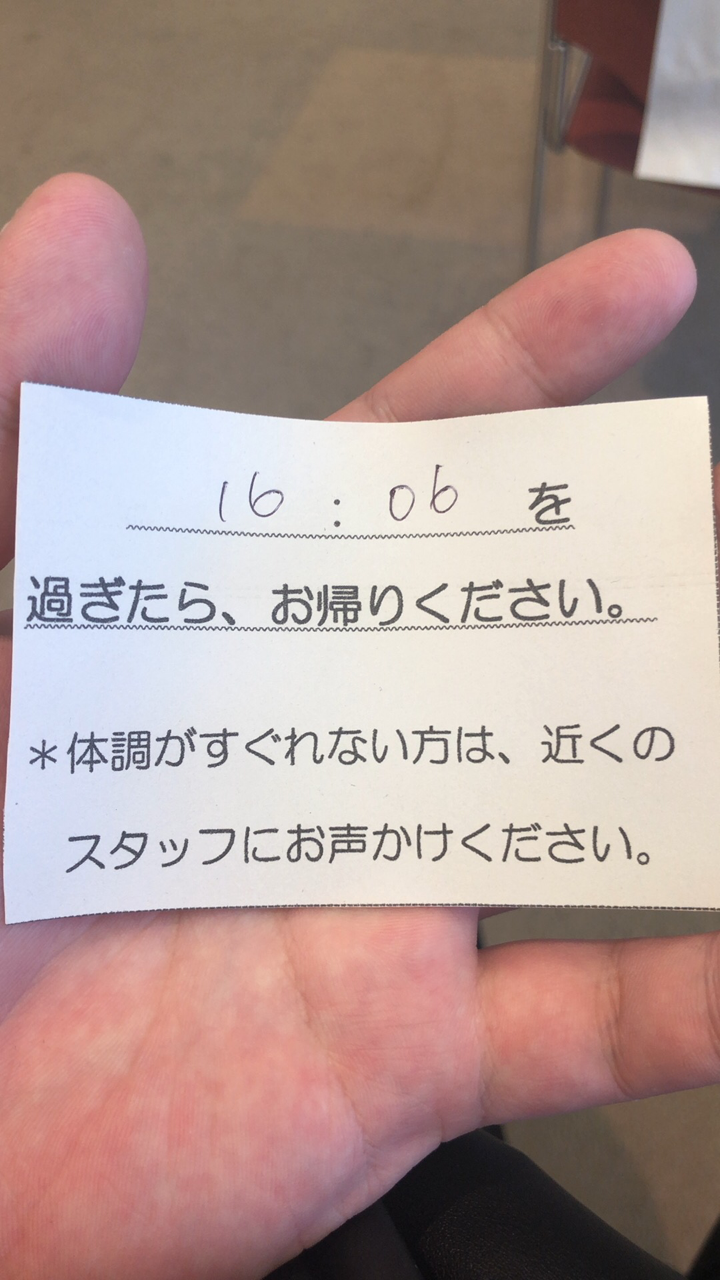 16:06を
過ぎたら、お帰りください。
＊体調がすぐれない方は、近くの
スタッフにお声かけください。